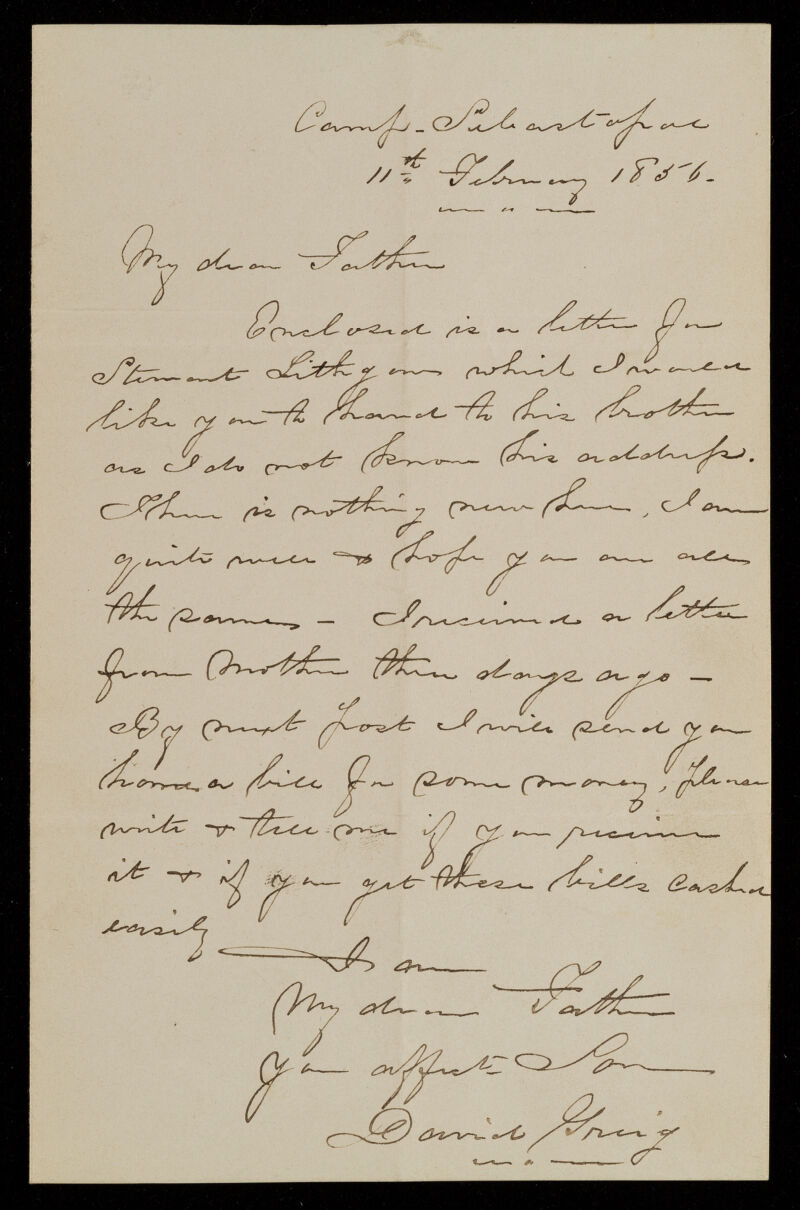 Camp - Sebastopol
11th February 1856.
My dear Father
Enclosed is a letter for
Stewart Lithgow which I would
like you to hand to his brother
as I do not know his address.
There is nothing new here, I am
quite well & hope you are all
the same - I received a letter
from Mother three days ago -
By next post I will send you
home a bill for some money, please
write & tell me if you receive
it & if you get these bills cashed
easily
I am
My dear Father
your affect. Son
David Greig